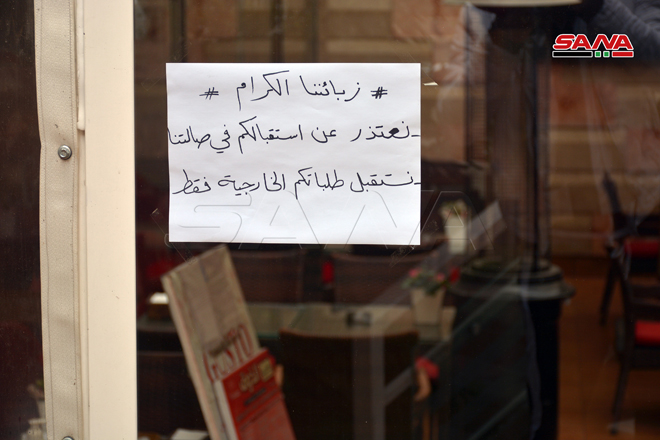 SANA
# زبائننا الكرام #
- نعتذر عن استقبالكم في صالتنا
- نستقبل طلباتكم الخارجية فقط
SANA